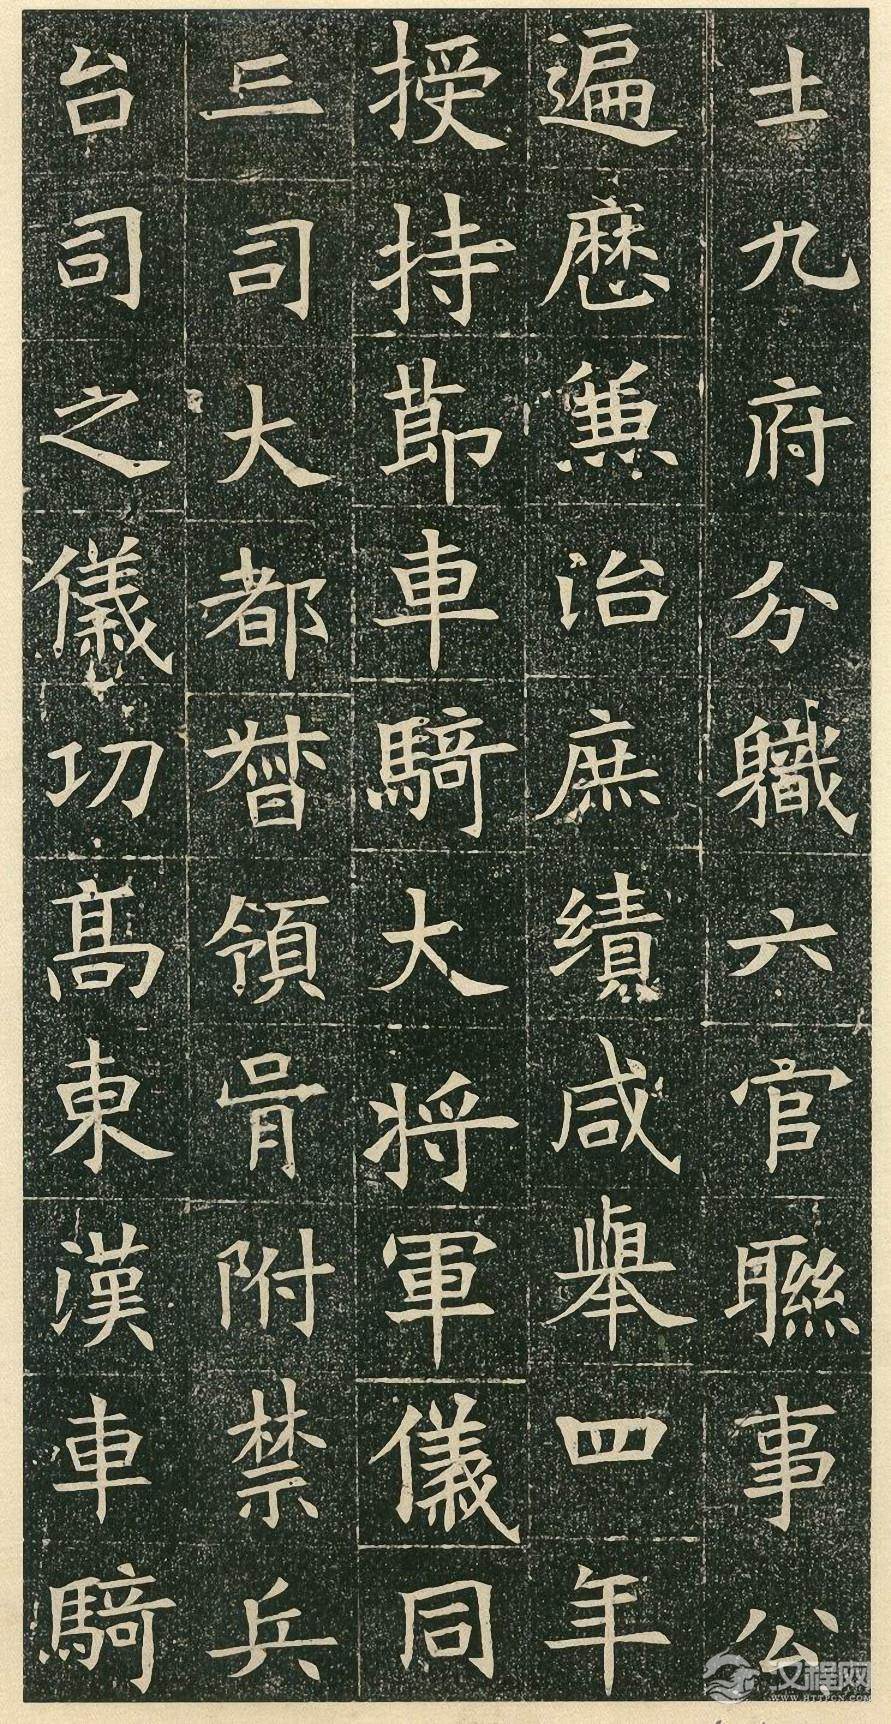 士九府分職六官聯事公
遍歷兼治庶績咸舉四年
授持節車騎大将軍儀同
三司大都督領胥附禁兵
台司之儀功髙東漢車騎
汉程网
WWW.HTTPCN.COM